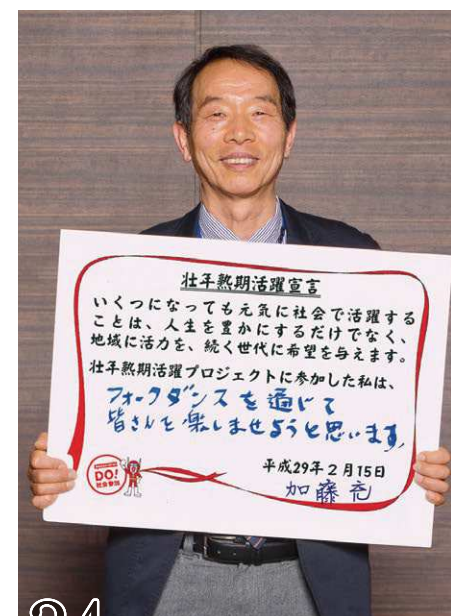 壮年熟期活躍宣言
いくつになっても元気に社会で活躍する
ことは、人生を豊かにするだけでなく、
地域に活力を、続く世代に希望を与えます。
壮年熟期活躍プロジェクトに参加した私は、
フォークダンスを通じて
皆さんを楽しませようと思います
平成29年2月15日
DO!
社会参加
加藤充
24